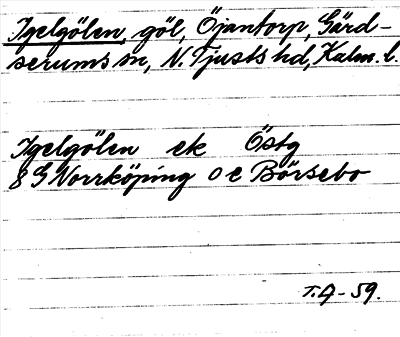 Igelgölen, göl, Öjantorp, Gärd-
serums sn, N. Tjusts hd, Kalm. l.
Igelgölen ek Östg
8 G Norrköping o e Börsebo
T.A-59.